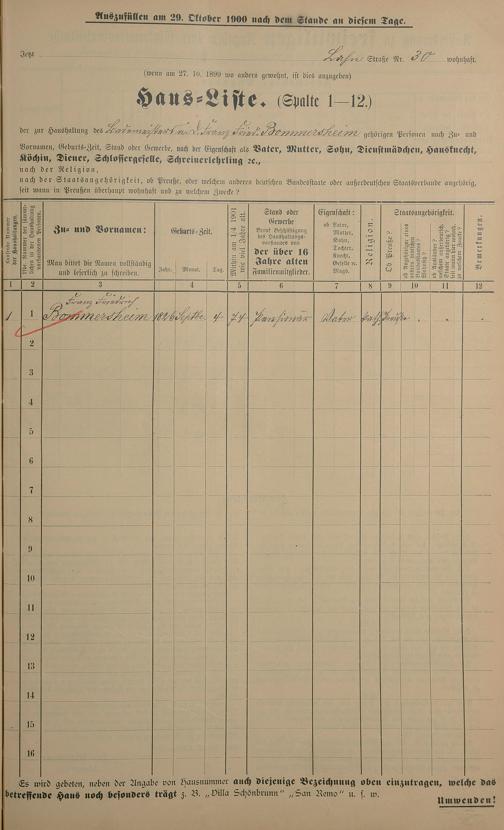 Auszufüllen am 29. Oktober 1900 nach dem Stande an diesem Tage.
Jetzt Lahn Straße Nr. 30 wohnhaft.
(wenn am 27. 10. 1899 wo anders gewohnt, ist dies anzugeben)
Haus-Liste. (Spalte 1—12.)
der zur Haushaltung des Bademeisters a. D. Franz Fried. Bommersheim gehörigen Personen nach Zu- und
Vornamen, Geburts-Zeit, Stand oder Gewerbe, nach der Eigenschaft als Vater, Mutter, Sohn, Dienstmädchen, Hausknecht,
Köchin, Diener, Schlossergeselle, Schreinerlehrling ec.,
nach der Religion,
nach der Staatsangehörigkeit, ob Preuße, oder welchem anderen deutschen Bundesstaate oder außerdeutschen Staatsverbande angehörig,
seit wann in Preußen überhaupt wohnhaft und zu welchem Zwecke?
Laufende Nummer der Haushaltungen.
Die Nummer der Haushaltung vorhandenen Personen.
Zu- und Vornamen:
Man bittet die Namen vollständig
und leserlich zu schreiben.
Geburts-Zeit.
Jahr. Monat. Tag.
Mithin am 1/4 1901
wie viel Jahre alt.
Stand oder
Gewerbe
der über 16
Jahre alten
Familienmitglieder.
Eigenschaft:
ob Vater,
Mutter,
Sohn,
Tochter,
Knecht,
Geselle u.
Magd.
Religion.
Staatsangehörigkeit.
Ob Preuße?
Bemerkungen.
1 2 3 4 5 6 7 8 9 10 11 12
Franz Friedrich
1 1 Bommersheim 1826 Septbr. 4 74 Pensionär Vater kath. Preuße
2
3
4
5
6
7
8
9
10
11
12
13
14
15
16
Es wird gebeten, neben der Angabe von Hausnummer auch diejenige Bezeichnung oben einzutragen, welche das
betreffende Haus noch besonders trägt z. B. „Villa Schönbrunn" „San Remo" u. s. w.
Umwenden!